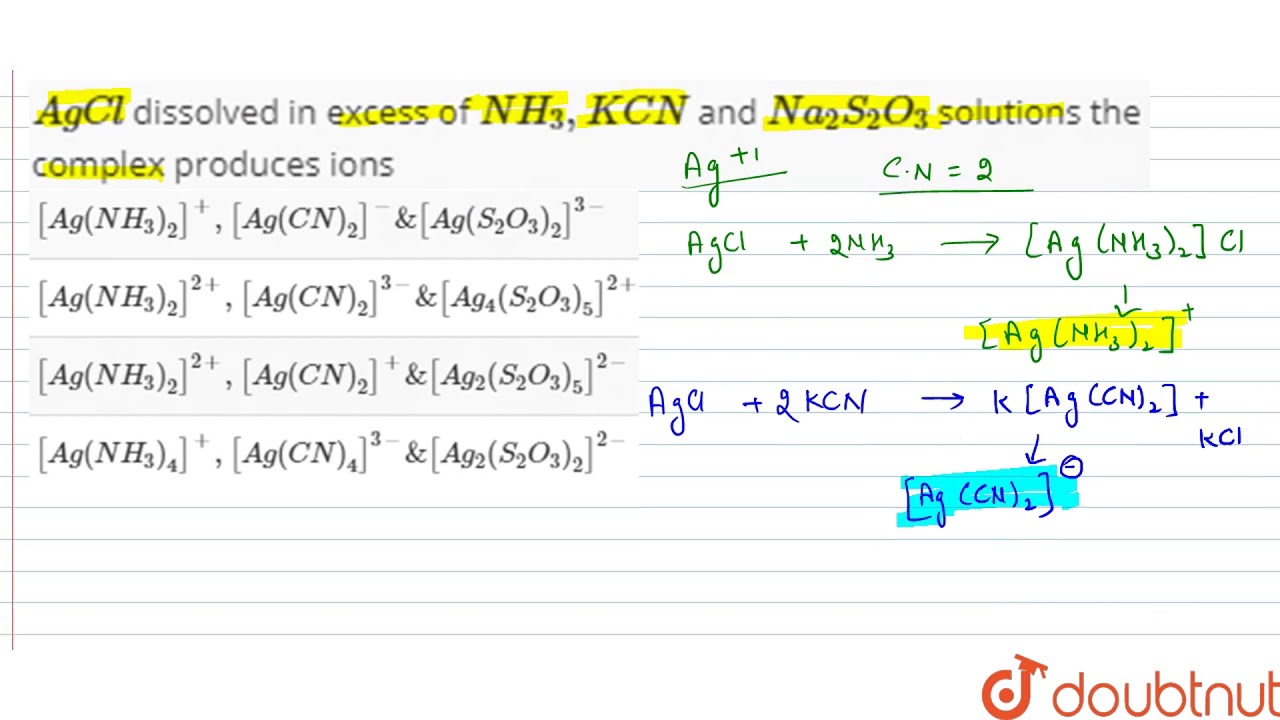 AgCl dissolved in excess of NH₃, KCN and Na₂S₂O₃ solutions the
complex produces ions
[Ag(NH₃)₂]⁺, [Ag(CN)₂]⁻ & [Ag(S₂O₃)₂]³⁻
[Ag(NH₃)₂]²⁺, [Ag(CN)₂]³⁻ & [Ag₄(S₂O₃)₅]²⁺
[Ag(NH₃)₂]²⁺, [Ag(CN)₂]⁺ & [Ag₂(S₂O₃)₅]²⁻
[Ag(NH₃)₄]⁺, [Ag(CN)₄]³⁻ & [Ag₂(S₂O₃)₂]²⁻
Ag⁺¹ C.N = 2
AgCl + 2NH₃ → [Ag(NH₃)₂]Cl
↓
[Ag(NH₃)₂]⁺
AgCl + 2KCN → K[Ag(CN)₂] +
KCl
↓
[Ag(CN)₂]⊖
doubtnut